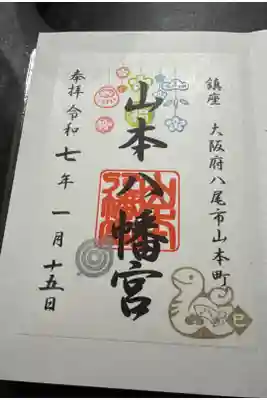 鎮座 大阪府八尾市山本町
山本八幡宮
奉拝 令和七年 一月 十五日
巳